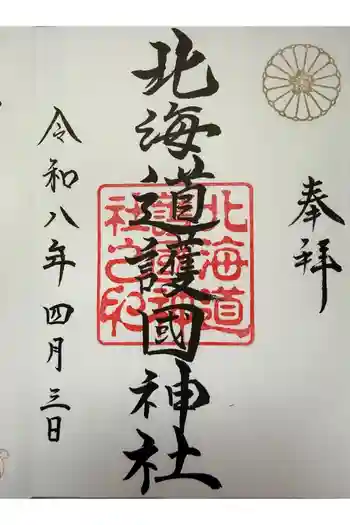 奉拝
北海道護國神社
北海道
護國神
社之印
令和八年四月三日